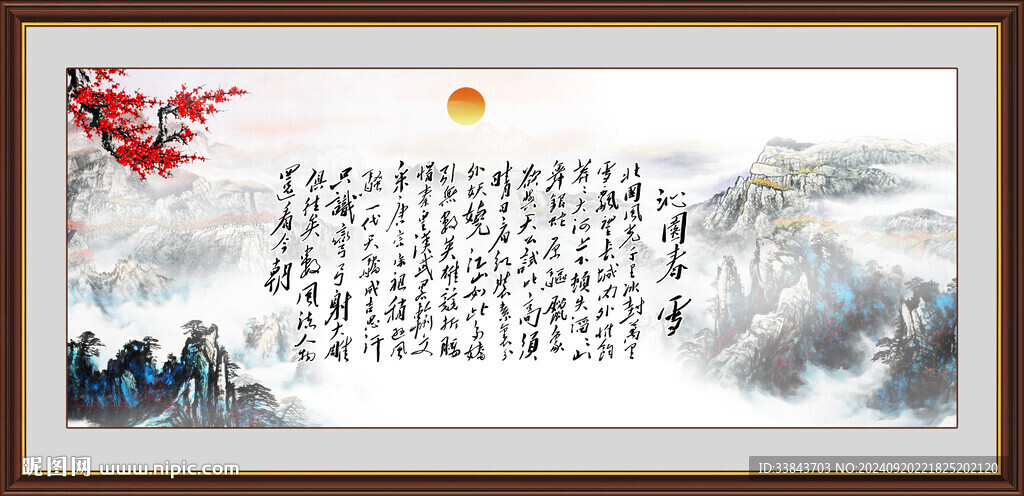 沁園春 雪
北國風光千里冰封萬里
雪飄望長城内外惟餘
莽莽大河上下頓失滔滔山
舞銀蛇原驅臘象
欲與天公試比高須
晴日看紅裝素裹分
外妖嬈江山如此多嬌
引無數英雄競折腰
惜秦皇漢武略輸文
采唐宗宋祖稍遜風
騷一代天驕成吉思汗
只識彎弓射大雕
俱往矣數風流人物
還看今朝
昵图网 www.nipic.com
ID:33843703 NO:20240920221825202120